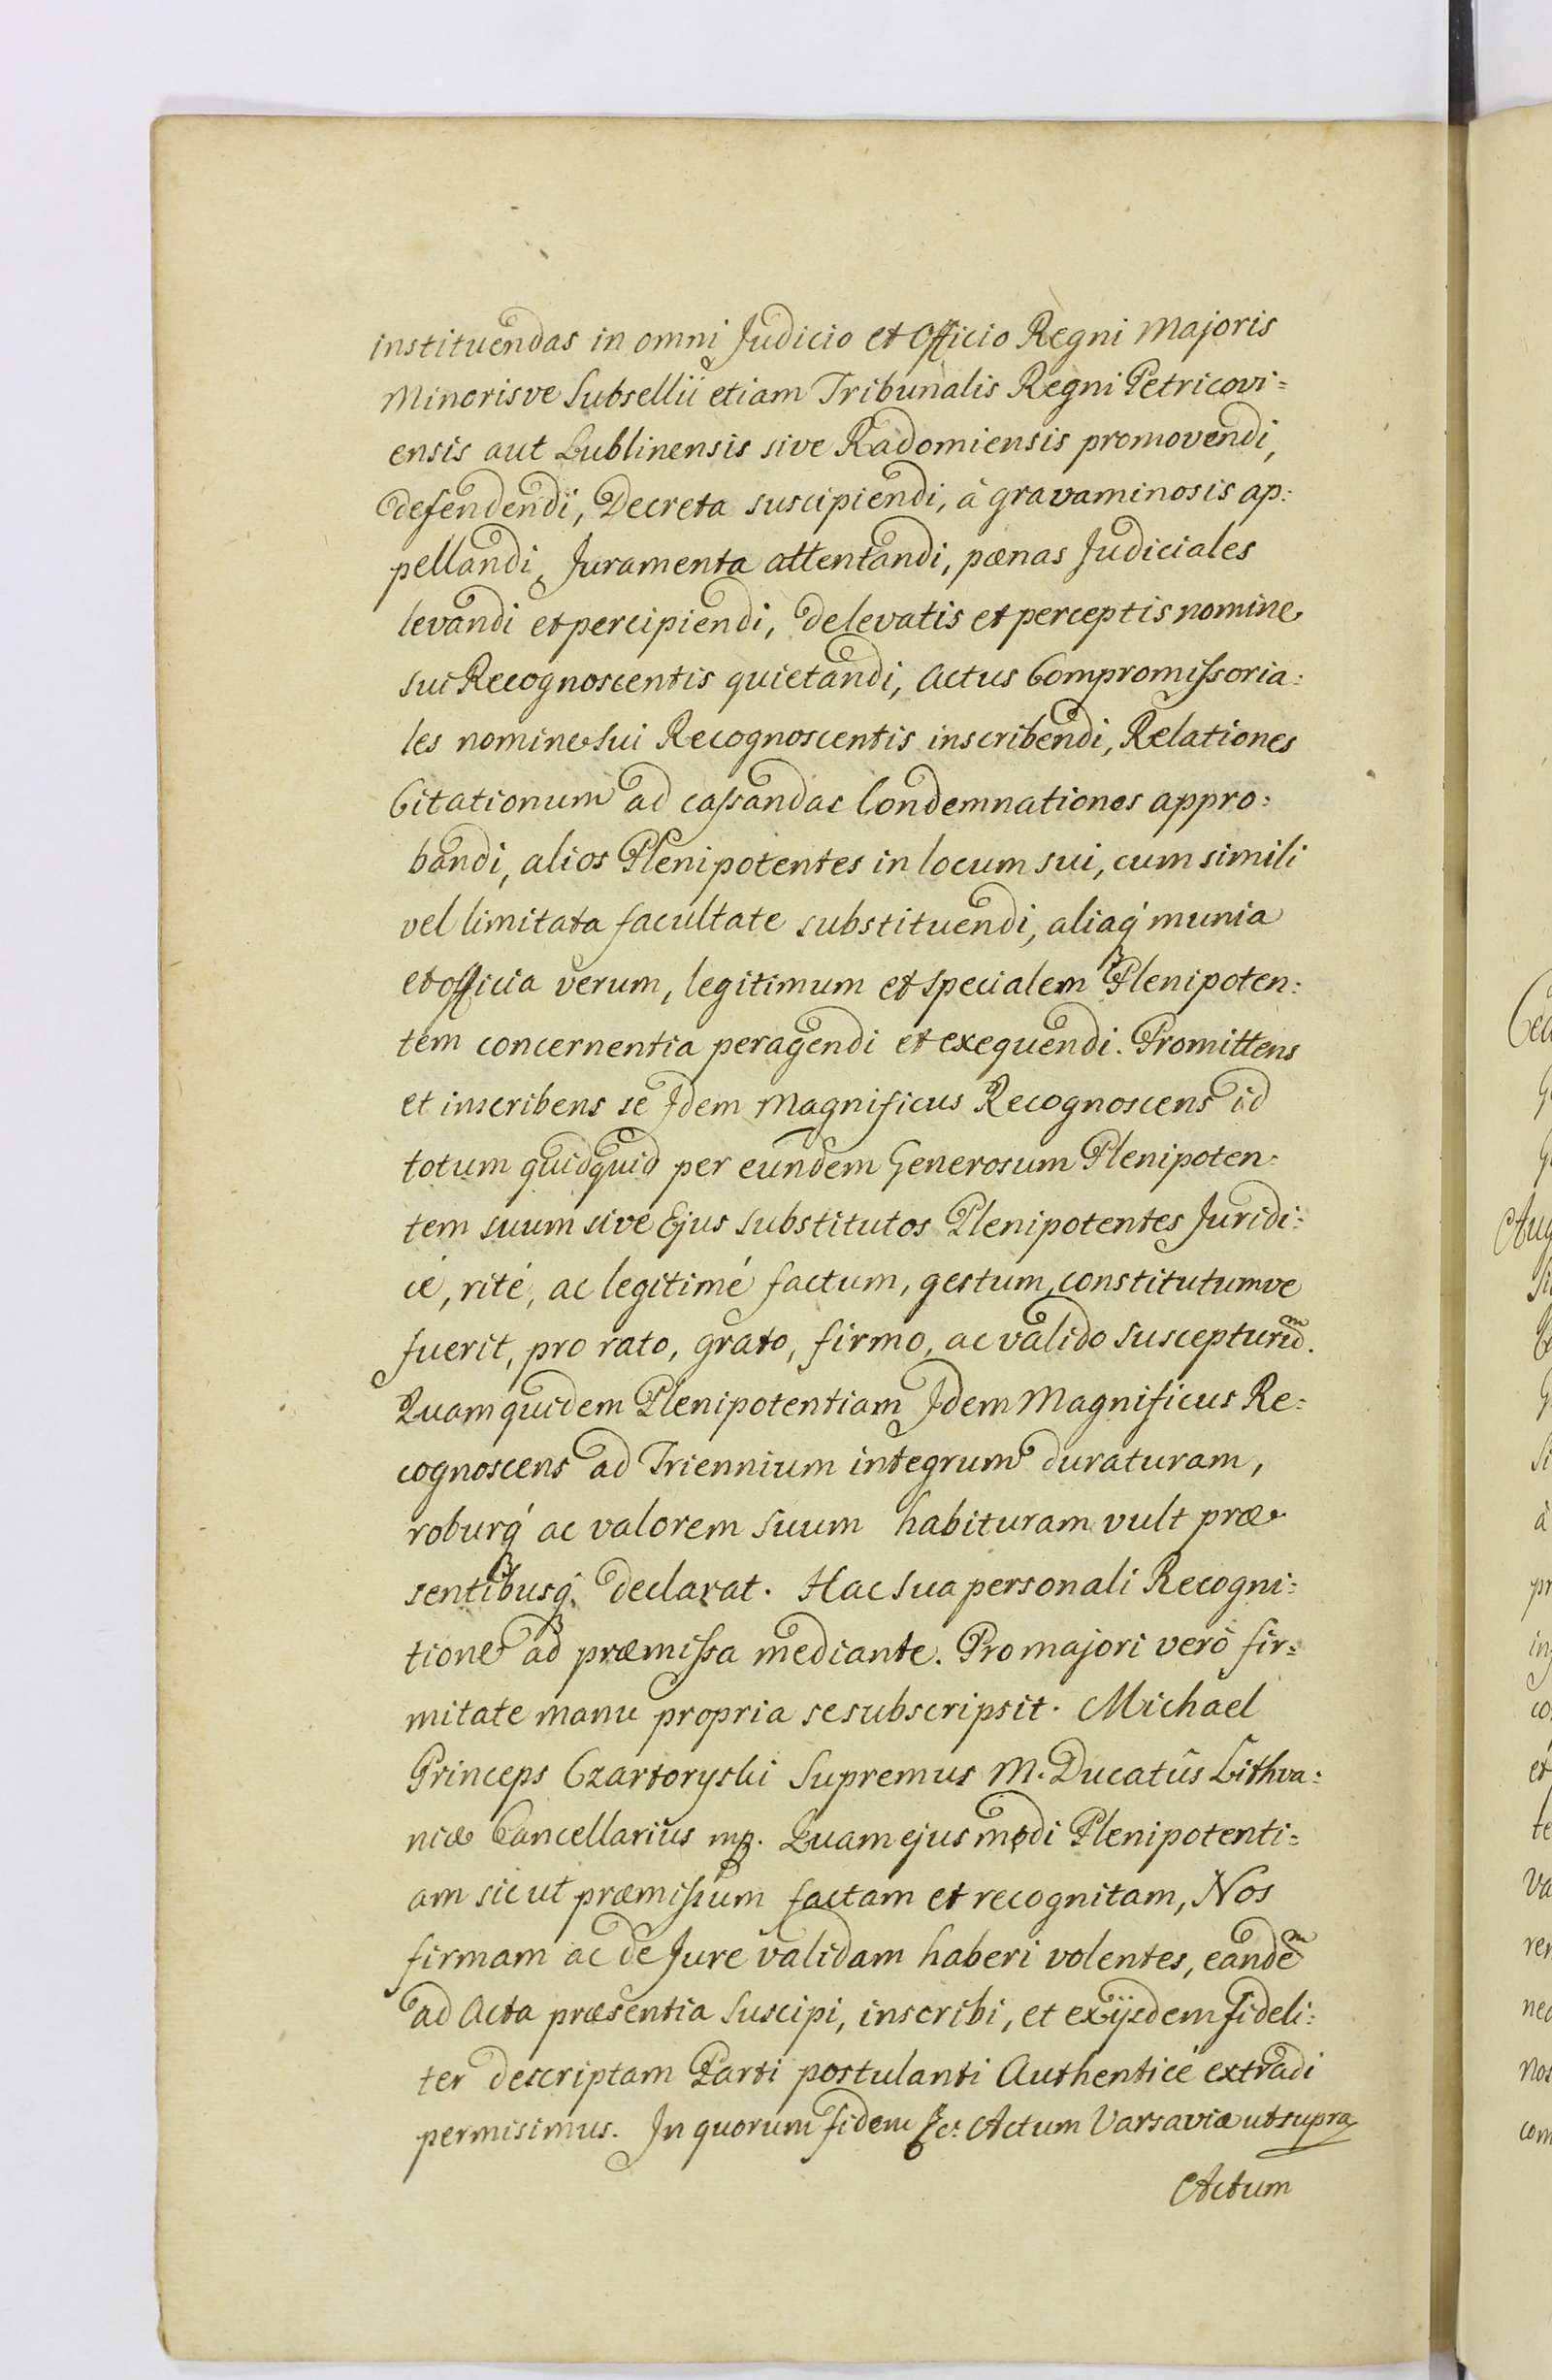 instituendas in omni Judicio et Officio Regni Majoris
Minorisve Subsellii etiam Tribunalis Regni Petricovi=
ensis aut Lublinensis sive Radomiensis promovendi,
defendendi, Decreta suscipiendi, à gravaminosis ap:
pellandi, Juramenta attentandi, pœnas Judiciales
levandi et percipiendi, de levatis et perceptis nomine
sui Recognoscentis quietandi, Actus Compromissoria:
les nomine sui Recognoscentis inscribendi, Relationes
Citationum ad cassandas Condemnationes appro:
bandi, alios Plenipotentes in locum sui, cum simili
vel limitata facultate substituendi, aliaq́ munia
et officia verum, legitimum et specialem Plenipoten:
tem concernentia peragendi et exequendi. Promittens
et inscribens se Idem Magnificus Recognoscens id
totum quidquid per eundem Generosum Plenipoten:
tem suum sive Ejus substitutos Plenipotentes Juridi:
cé, rité, ac legitimé factum, gestum, constitutumve
fuerit, pro rato, grato, firmo, ac valido suscepturũ.
Quam quidem Plenipotentiam Idem Magnificus Re:
cognoscens ad Triennium integrum duraturam,
roburq́ ac valorem suum habituram vult præ
sentibusq́ declarat. Hac sua personali Recogni:
tione ad præmissa mediante. Pro majori verò fir=
mitate manu propria se subscripsit. Michael
Princeps Czartoryski Supremus M. Ducatûs Lithva:
niæ Cancellarius mp. Quam ejusmodi Plenipotenti=
am sic ut præmissum factam et recognitam, Nos
firmam ac de Jure validam haberi volentes, eandem
ad Acta præsentia suscipi, inscribi, et ex ijsdem fideli:
ter descriptam Parti postulanti Authenticé extradi
permisimus. In quorum fidem &c: Actum Varsaviæ ut supra
Actum